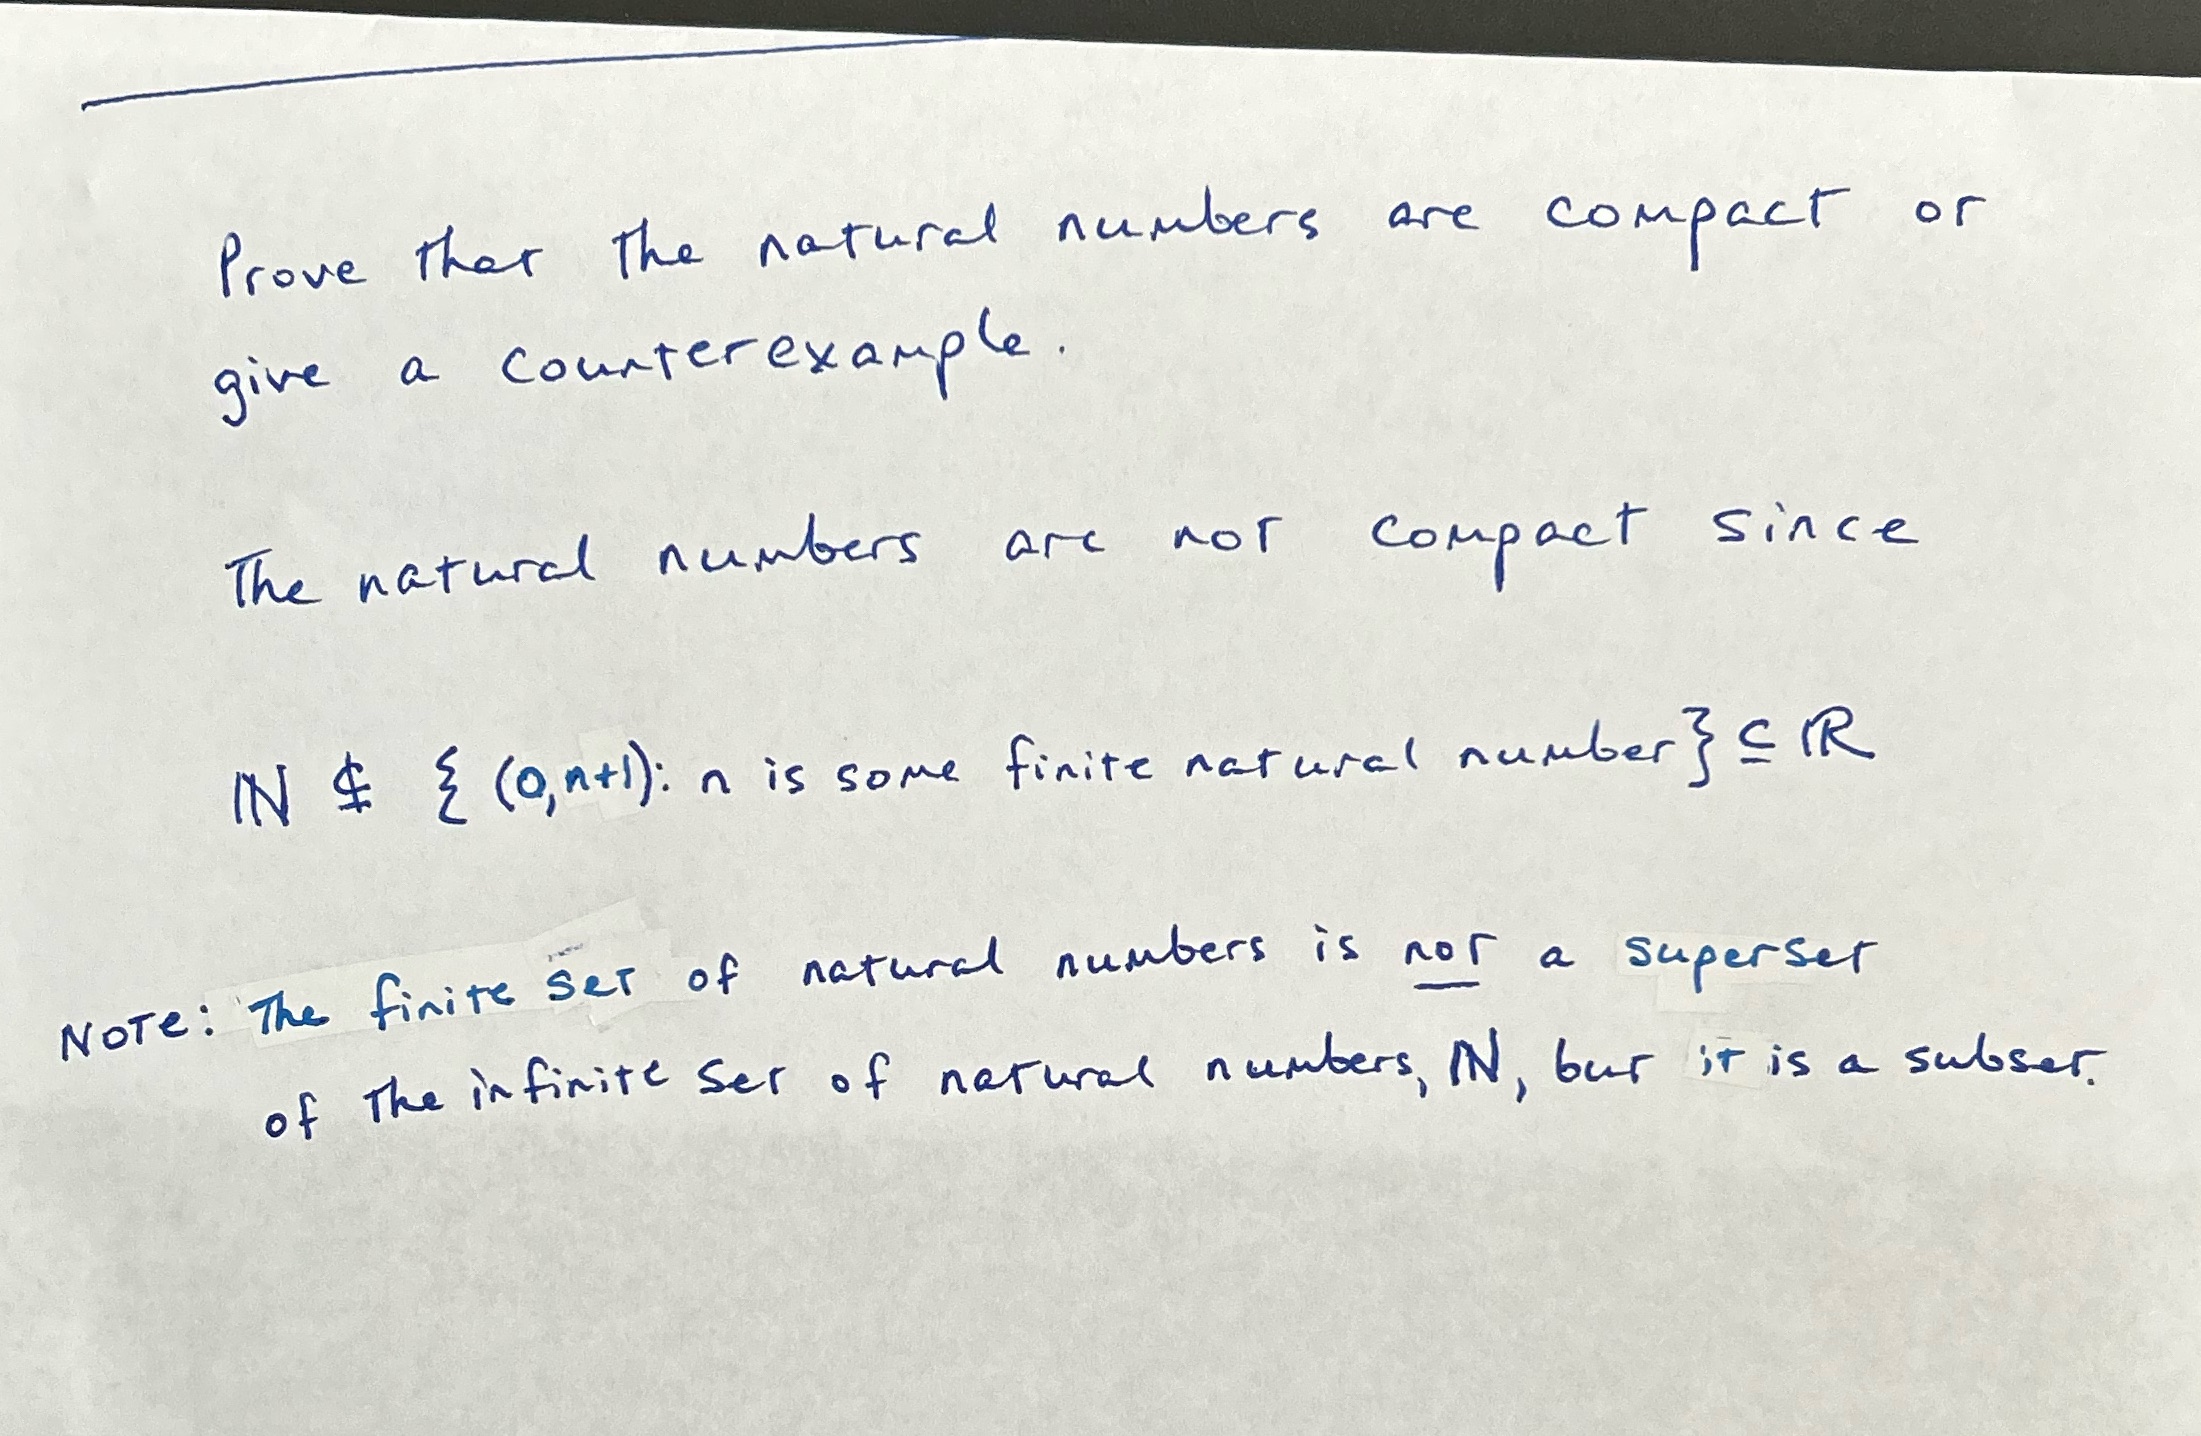 Prove that the natural numbers are compact or
give a counterexample.
The natural numbers are not compact since
ℕ ⊈ { (0,n+1): n is some finite natural number} ⊆ ℝ
NOTE: The finite set of natural numbers is not a superset
of the infinite set of natural numbers, ℕ, but it is a subset.